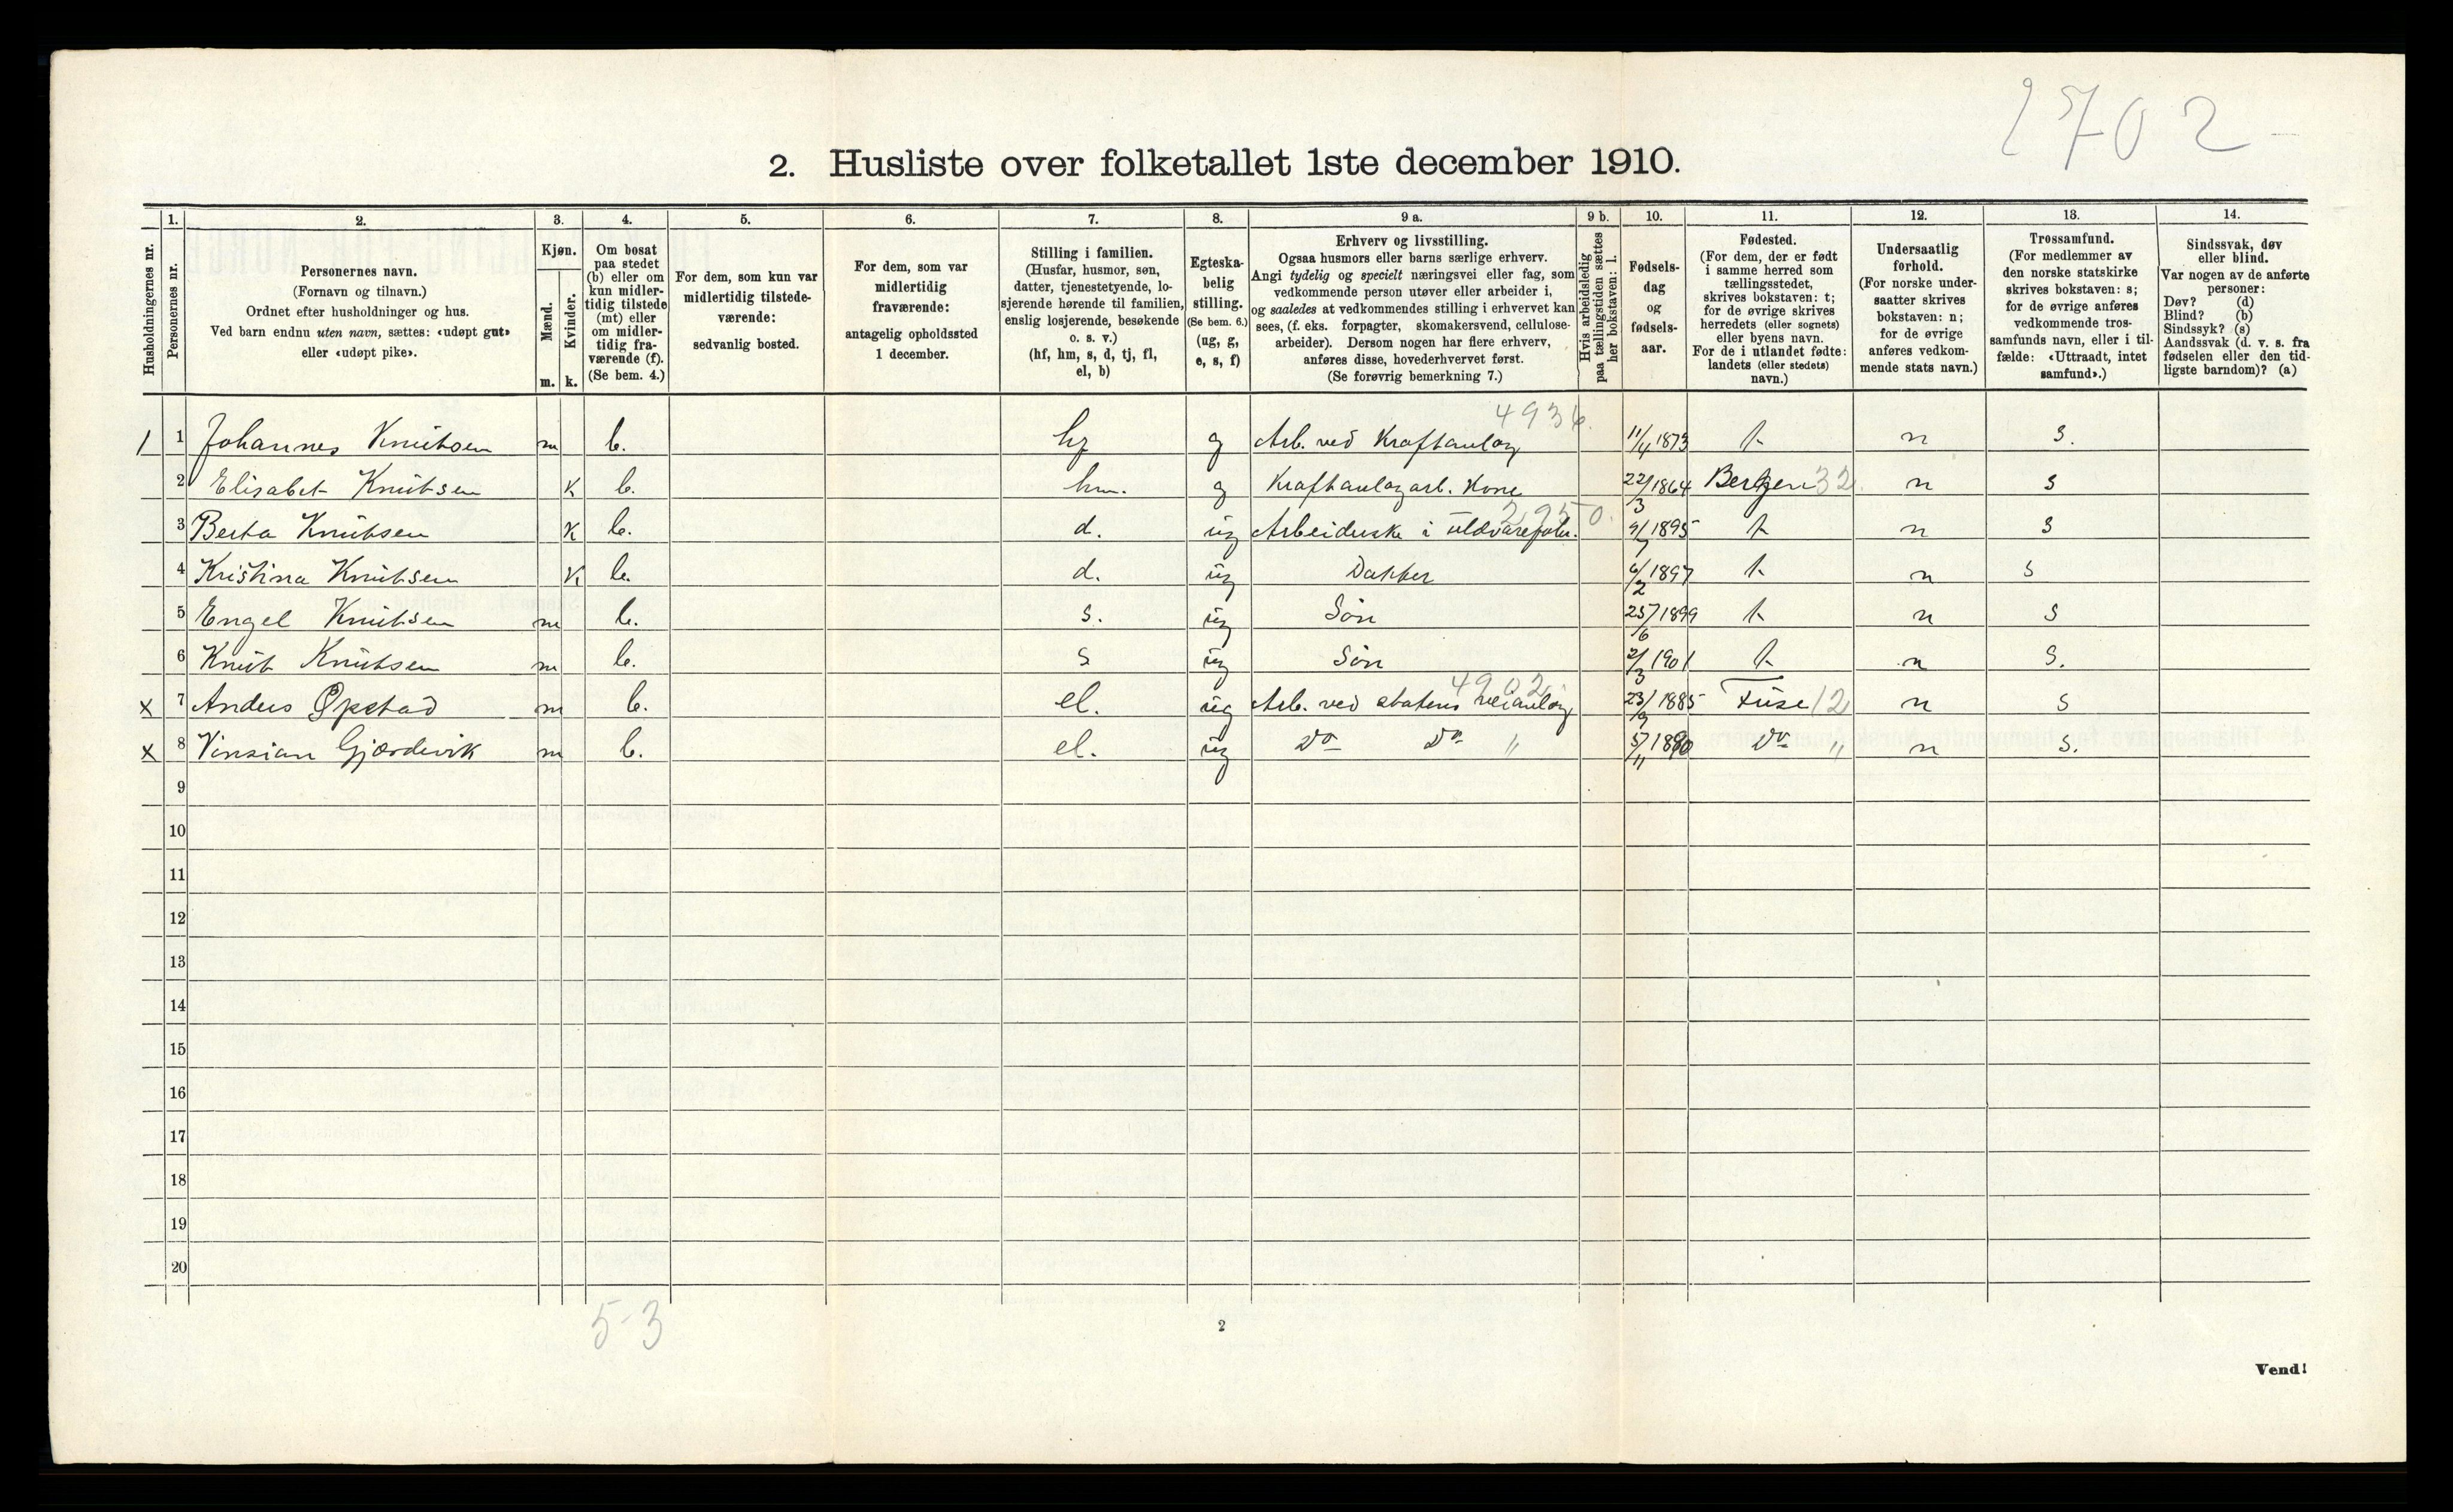 2702
2. Husliste over folketallet 1ste december 1910.
Husholdningernes nr.
1. Personernes nr.
2. Personernes navn.
(Fornavn og tilnavn.)
Ordnet efter husholdninger og hus.
Ved barn endnu uten navn, sættes: «udøpt gut»
eller «udøpt pike».
3. Kjøn.
Mænd. Kvinder.
m. k.
4. Om bosat
paa stedet
(b) eller om
kun midler-
tidig tilstede
(mt) eller
om midler-
tidig fra-
værende (f).
(Se bem. 4.)
5. For dem, som kun var
midlertidig tilstede-
værende:
sedvanlig bosted.
6. For dem, som var
midlertidig
fraværende:
antagelig opholdssted
1 december.
7. Stilling i familien.
(Husfar, husmor, søn,
datter, tjenestetyende, lo-
sjerende hørende til familien,
enslig losjerende, besøkende
o. s. v.)
(hf, hm, s, d, tj, fl,
el, b)
8. Egteska-
belig
stilling.
(Se bem. 6.)
(ug, g,
e, s, f)
9 a. Erhverv og livsstilling.
Ogsaa husmors eller barns særlige erhverv.
Angi tydelig og specielt næringsvei eller fag, som
vedkommende person utøver eller arbeider i,
og saaledes at vedkommendes stilling i erhvervet kan
sees, (f. eks. forpagter, skomakersvend, cellulose-
arbeider). Dersom nogen har flere erhverv,
anføres disse, hovederhvervet først.
(Se forøvrig bemerkning 7.)
9 b. Hvis arbeidsledig
paa tællingstiden sættes
her bokstaven: l.
10. Fødsels-
dag
og
fødsels-
aar.
11. Fødested.
(For dem, der er født
i samme herred som
tællingsstedet,
skrives bokstaven: t;
for de øvrige skrives
herredets (eller sognets)
eller byens navn.
For de i utlandet fødte:
landets (eller stedets)
navn.)
12. Undersaatlig
forhold.
(For norske under-
saatter skrives
bokstaven: n;
for de øvrige
anføres vedkom-
mende stats navn.)
13. Trossamfund.
(For medlemmer av
den norske statskirke
skrives bokstaven: s;
for de øvrige anføres
vedkommende tros-
samfunds navn, eller i til-
fælde: «Uttraadt, intet
samfund».)
14. Sindssvak, døv
eller blind.
Var nogen av de anførte
personer:
Døv? (d)
Blind? (b)
Sindssyk? (s)
Aandssvak (d. v. s. fra
fødselen eller den tid-
ligste barndom)? (a)
4936.
1 1 Johannes Knutsen m b. hf g Arb. ved Kraftanlæg 11/4 1873 t. n s.
2 Elisabet Knutsen K b. hm. g Kraftanlægarb. Kone 22/3 1864 Bergen 32. n s
2950.
3 Berta Knutsen K b. d. ug Arbeiderske i uldvarefabr. 9/7 1895 t. n s
4 Kristina Knutsen K b. d. ug Datter 6/2 1897 t. n s
5 Engel Knutsen m b. s. ug Søn 25/6 1899 t. n s
6 Knut Knutsen m b. s ug Søn 2/3 1901 t. n s.
4902.
x 7 Anders Opstad m b. el. ug Arb. ved statens veianlæg 23/9 1885 Fuse 12 n s
x 8 Vinsian Gjørdevik m b. el. ug Do Do " 5/11 1890 Do " n s.
9
10
11
12
13
14
15
16
17
18
19
20
5-3
2
Vend!